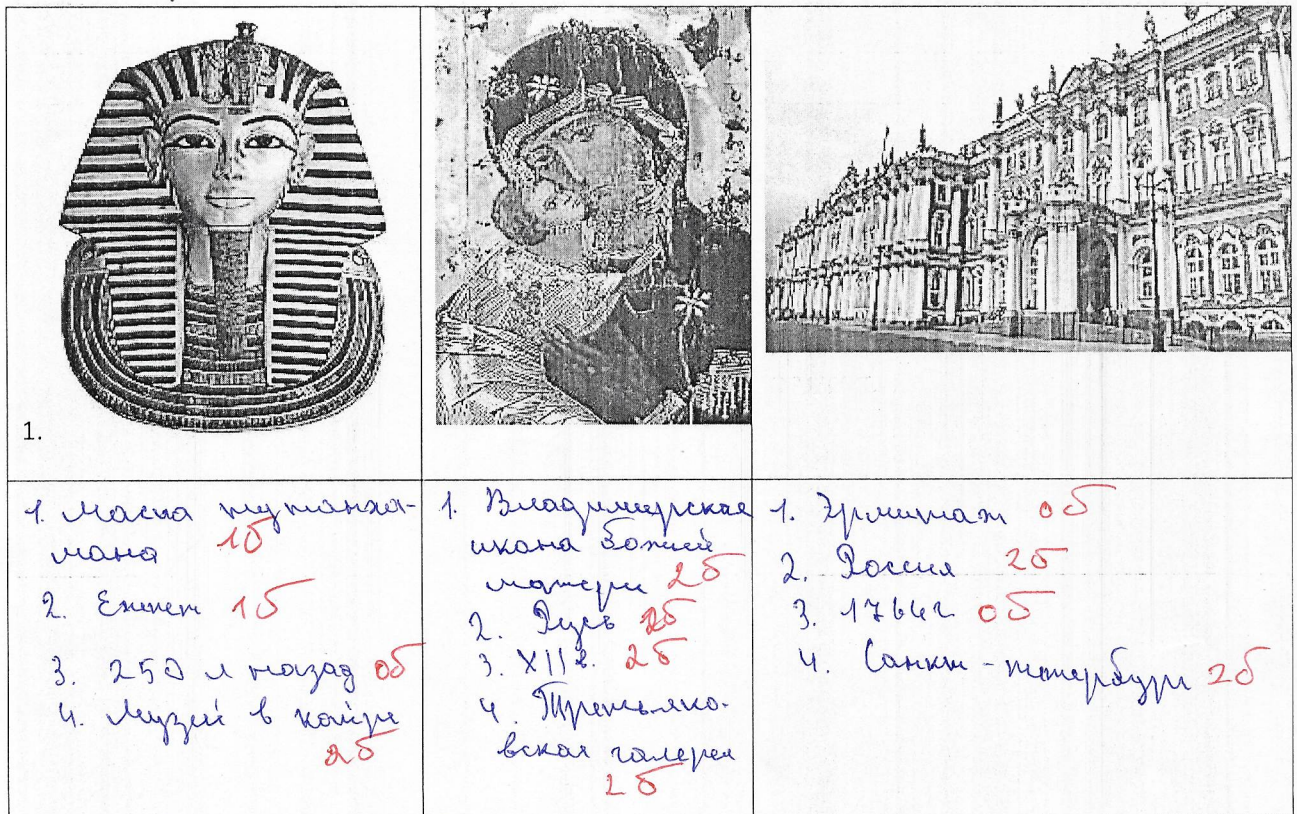 1.
1. Маска тутанха-
мона 1б
2. Египет 1б
3. 250 л назад 0б
4. Музей в каире
2б
1. Владимирская
икона божией
матери 2б
2. Русь 2б
3. XII в. 2б
4. Третьяко-
вская галерея
2б
1. Эрмитаж 0б
2. Россия 2б
3. 1764г 0б
4. Санкт-петербург 2б